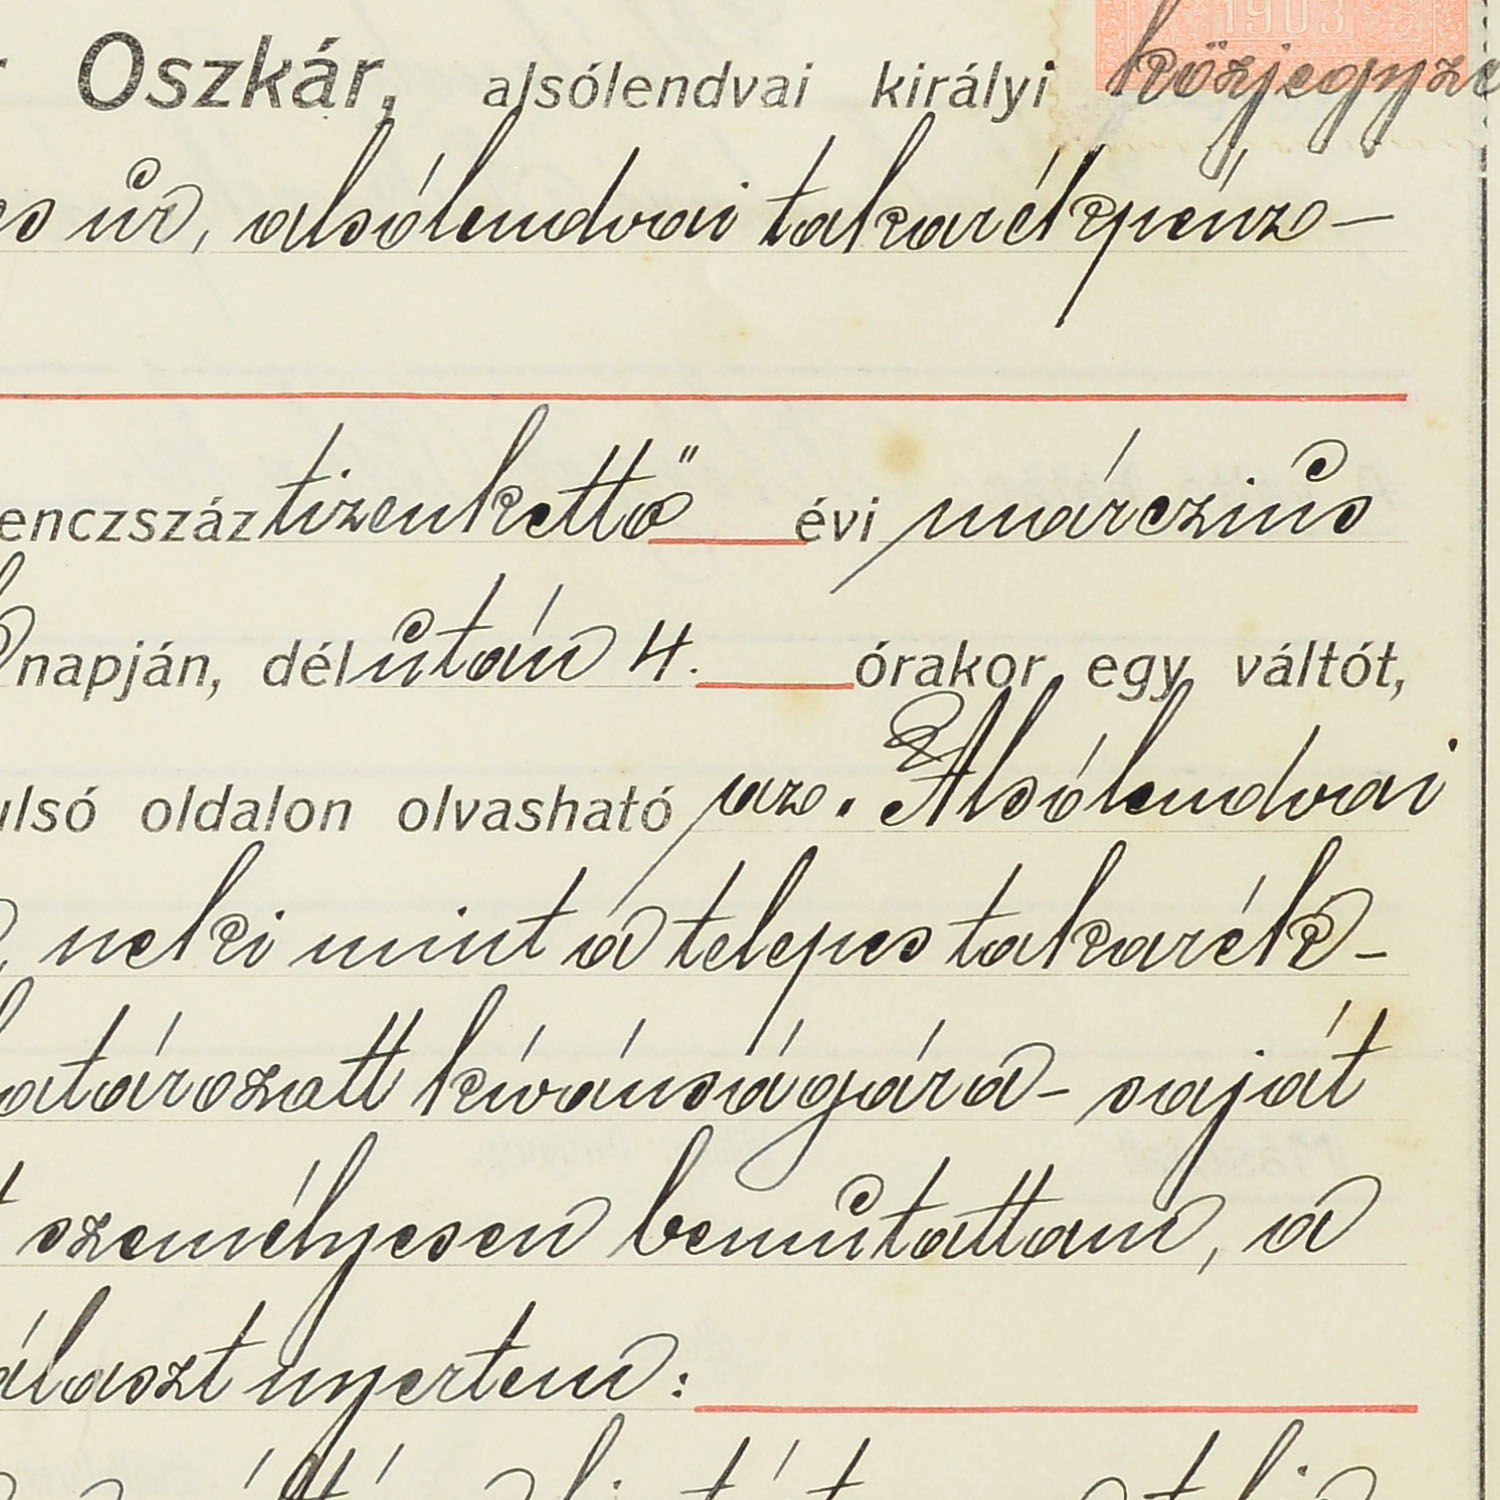 1903
Oszkár, alsólendvai királyi közjegyző
es úr, alsólendvai takarékpénz-
enczszáz tizenkettő évi márczius
napján, délután 4. órakor egy váltót,
ulsó oldalon olvasható az. Alsólendvai
neki mint a telepes takarék-
atározatt kívánságára - saját
személyesen bemutattam, a
álaszt nyertem: